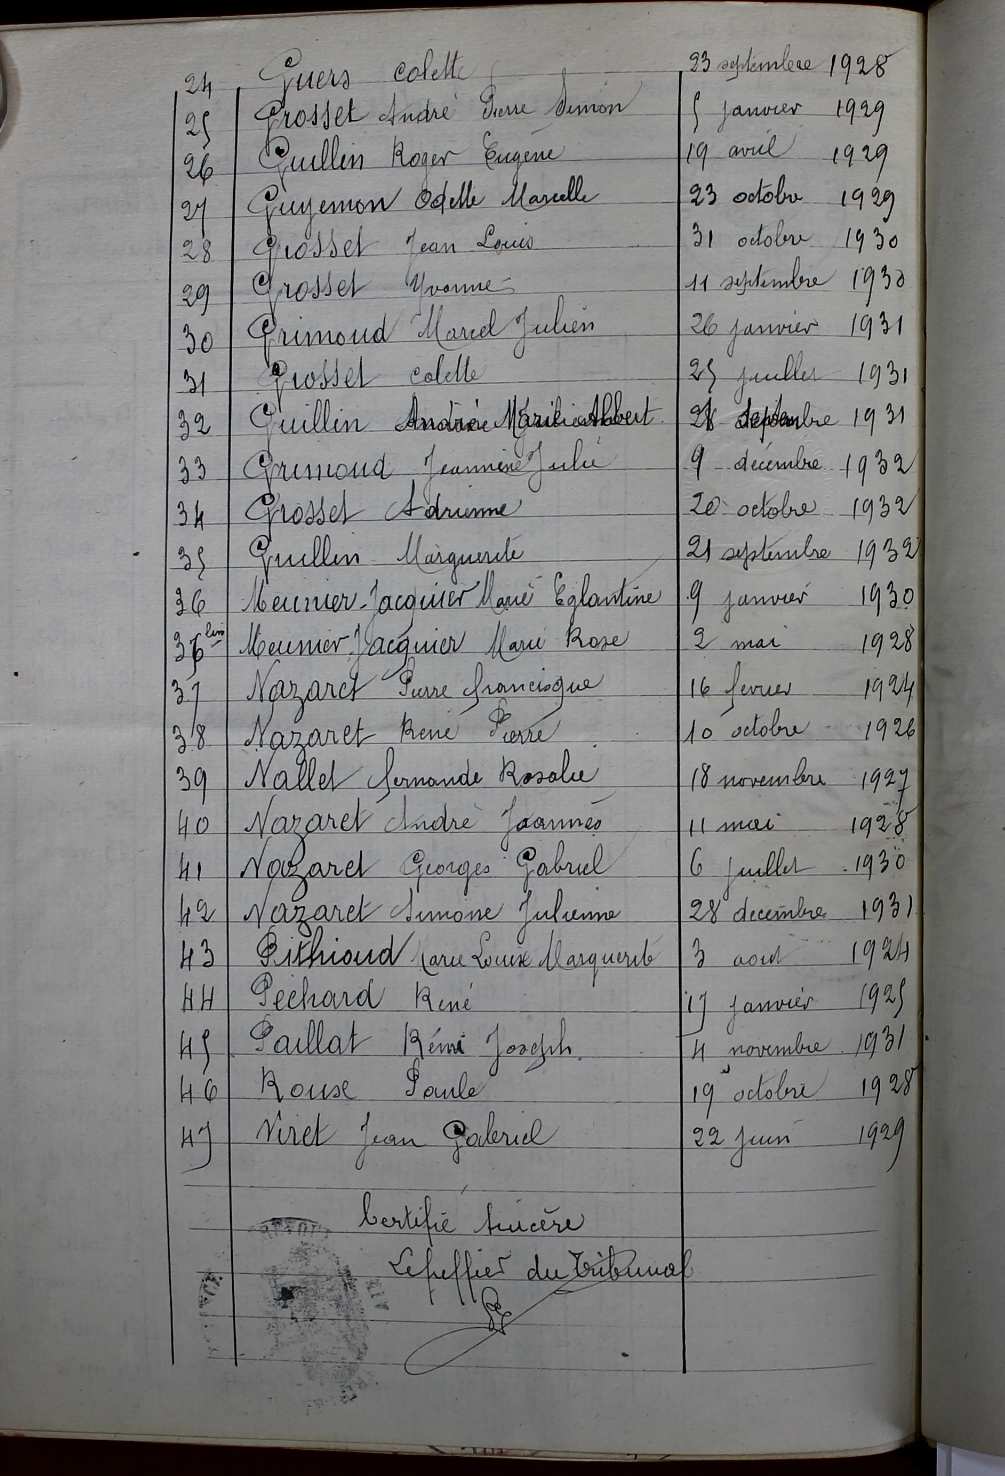 24 Guers Colette 23 septembre 1928
25 Grosset André Pierre Simon 5 janvier 1929
26 Guillin Roger Eugène 19 avril 1929
27 Guyemon Odette Marcelle 23 octobre 1929
28 Grosset Jean Louis 31 octobre 1930
29 Grosset Yvonne 11 septembre 1930
30 Grimoud Marcel Julien 26 janvier 1931
31 Grosset Colette 25 juillet 1931
32 Guillin Albert 1931
33 Grimoud Jeannine Julie 9 décembre 1932
34 Grosset Adrienne 20 octobre 1932
35 Guillin Marguerite 21 septembre 1932
36 Meunier-Jacquier Marie Eglantine 9 janvier 1930
36 bis Meunier-Jacquier Marie Rose 2 mai 1928
37 Nazaret Pierre Francisque 16 fevrier 1924
38 Nazaret René Pierre 10 octobre 1926
39 Nallet Fernande Rosalie 18 novembre 1927
40 Nazaret André Joannès 11 mai 1928
41 Nazaret Georges Gabriel 6 juillet 1930
42 Nazaret Simone Julienne 28 décembre 1931
43 Pithioud Marie Louise Marguerite 3 aout 1924
44 Pechard René 17 janvier 1925
45 Paillat Rémi Joseph 4 novembre 1931
46 Roux Paule 19 octobre 1928
47 Viret Jean Gabriel 22 juin 1929
Certifié sincère
Le greffier du tribunal